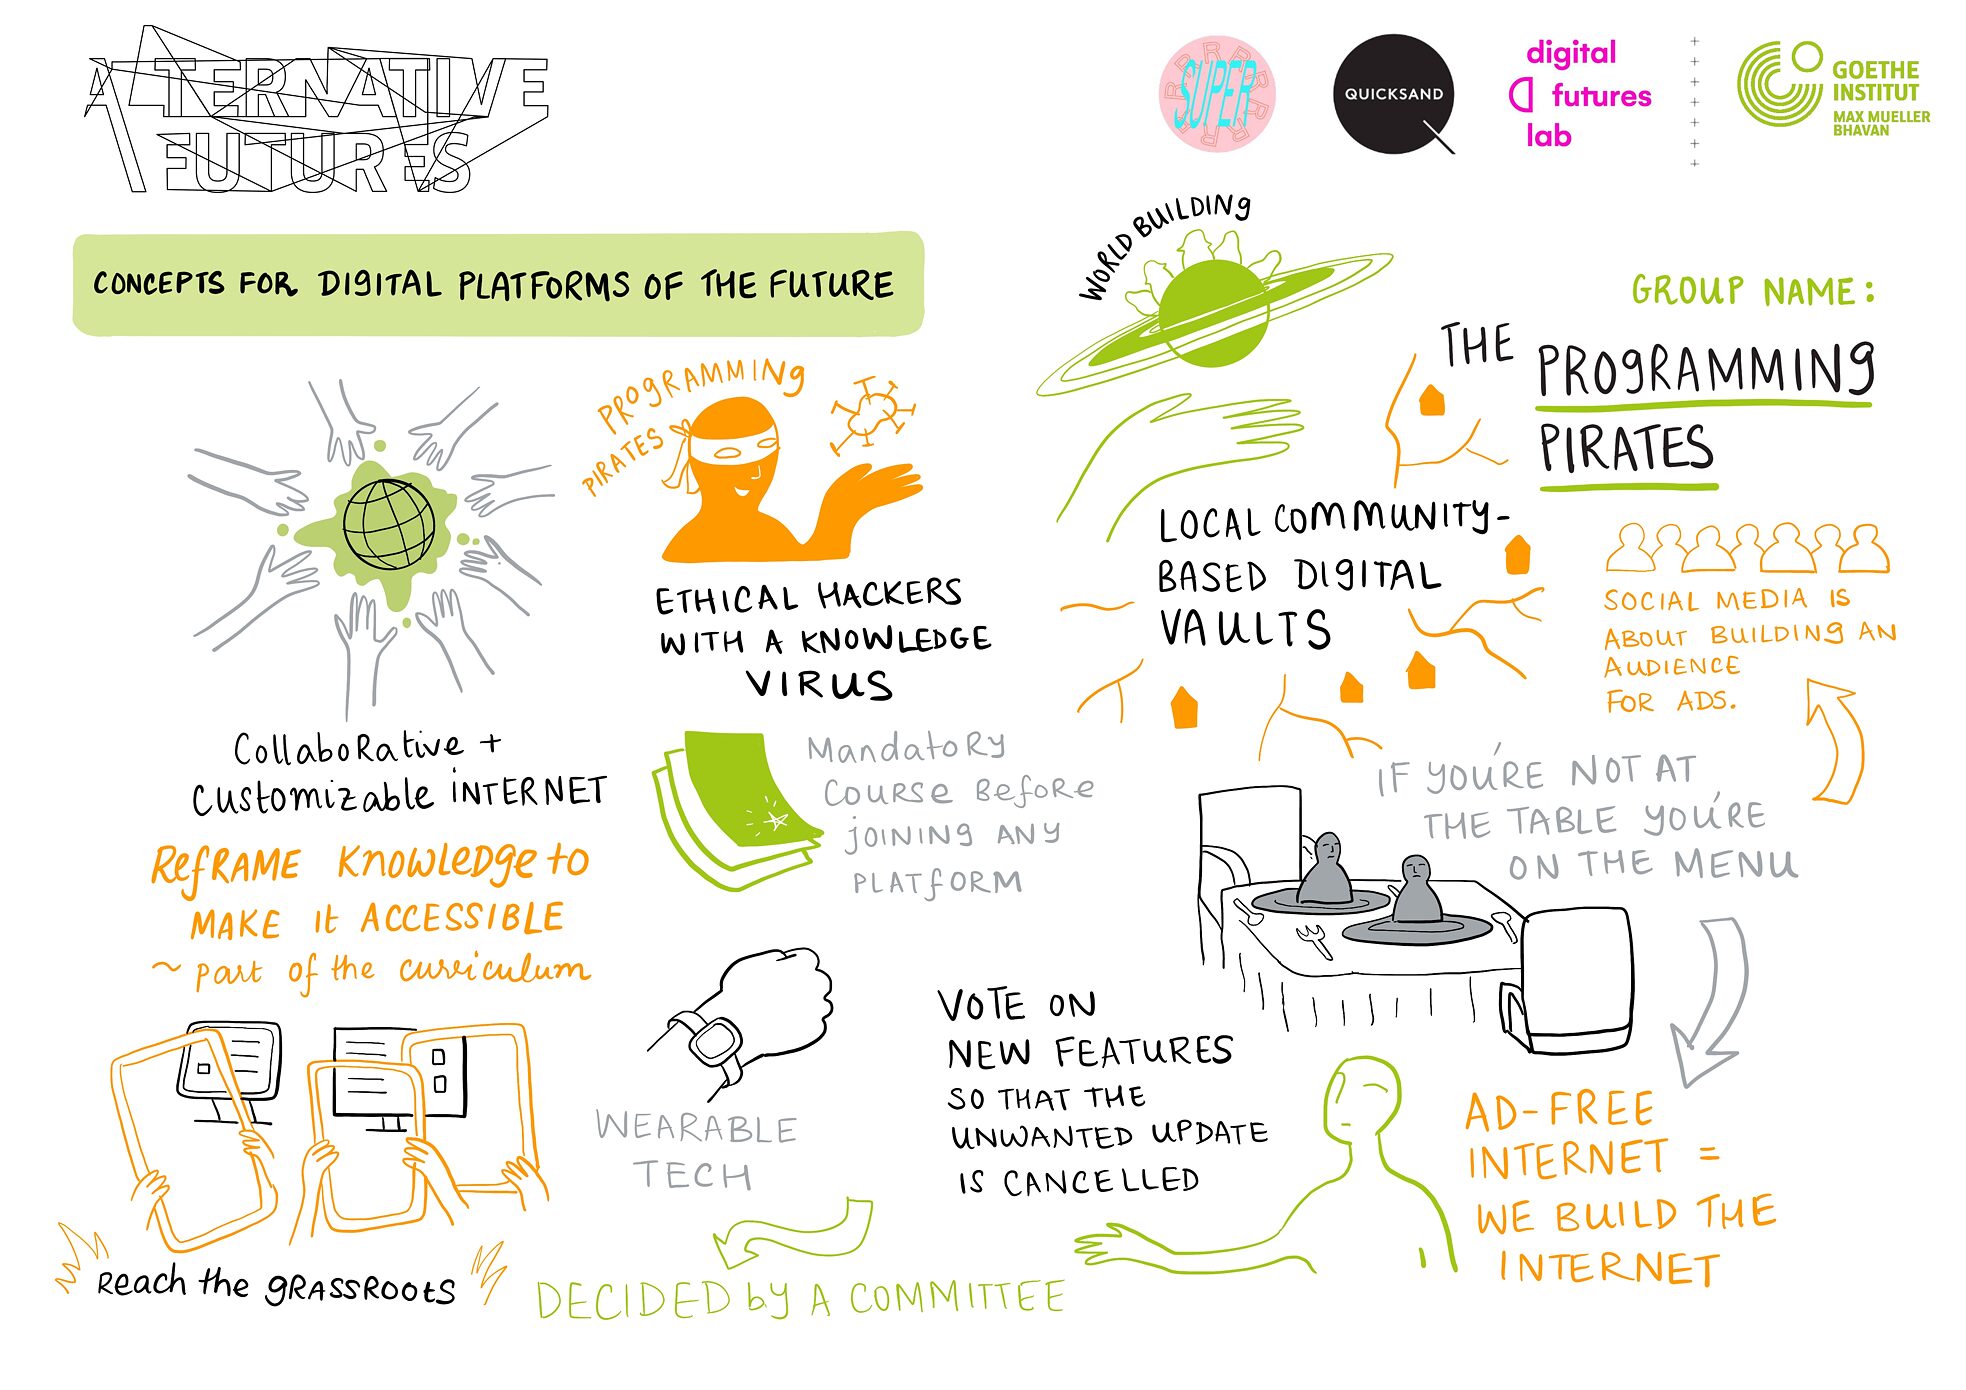 ALTERNATIVE
FUTURES
SUPER
RRRRRRRRRR
QUICKSAND
digital
futures
lab
GOETHE
INSTITUT
MAX MUELLER
BHAVAN
CONCEPTS FOR DIGITAL PLATFORMS OF THE FUTURE
WORLD BUILDING
GROUP NAME:
THE PROGRAMMING
PIRATES
PROGRAMMING
PIRATES
ETHICAL HACKERS
WITH A KNOWLEDGE
VIRUS
LOCAL COMMUNITY-
BASED DIGITAL
VAULTS
SOCIAL MEDIA IS
ABOUT BUILDING AN
AUDIENCE
FOR ADS.
Collaborative +
Customizable INTERNET
Reframe Knowledge to
MAKE it ACCESSIBLE
~ part of the curriculum
Mandatory
Course Before
JOINING ANY
PLATFORM
IF YOU'RE NOT AT
THE TABLE YOU'RE
ON THE MENU
Reach the GRASSROOTS
WEARABLE
TECH
VOTE ON
NEW FEATURES
SO THAT THE
UNWANTED UPDATE
IS CANCELLED
DECIDED by A COMMITTEE
AD-FREE
INTERNET =
WE BUILD THE
INTERNET